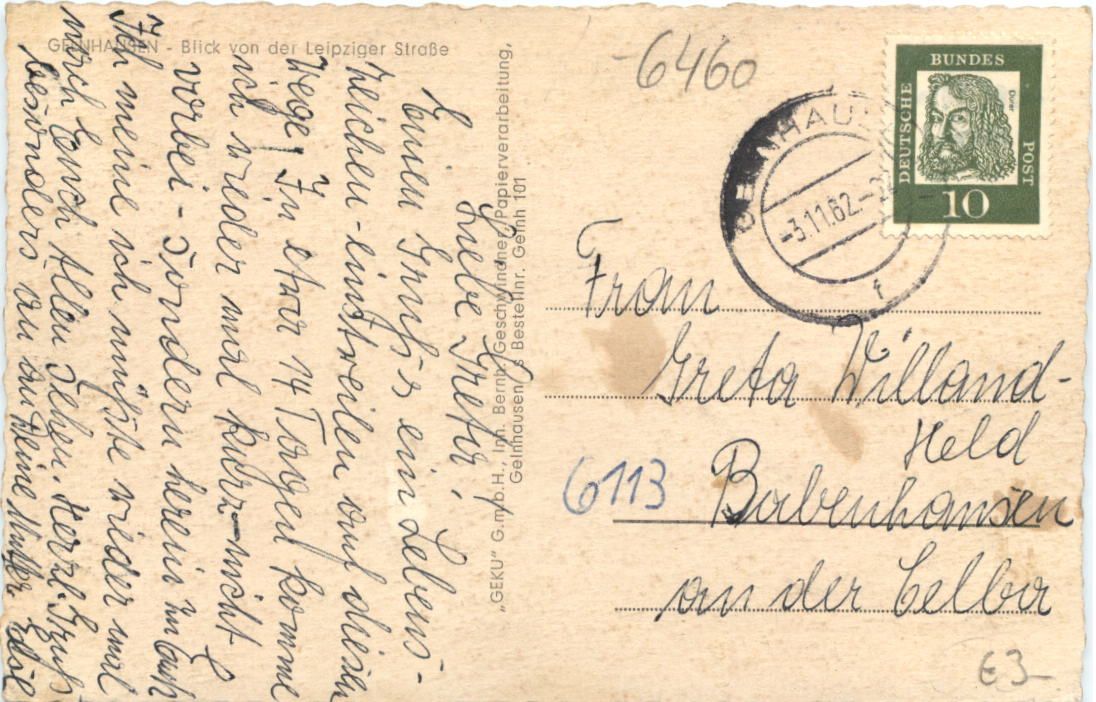 GELNHAUSEN - Blick von der Leipziger Straße
Liebe Greta!
Einen Gruß & ein Lebens-
zeichen - einstweilen auf diesem
Wege; In etwa 14 Tagen komme
ich wieder mal kurz - nicht
vorbei - sondern herein zu Euch
Ich meine ich müßte wieder mal
nach Euch Allen sehen. Herzl. Gruß
besonders an an Deine Mutter
„GEKU“ G.m.b.H., Inh. Bernh. Geschwindner, Papierverarbeitung,
Gelnhausen Bestellnr. Gelnh 101
6460
GELNHAUSEN
-3.11.62-
f
DEUTSCHE
BUNDES
POST
Dürer
10
Frau
Greta Willand-
Held
6113
Babenhausen
an der Celba
€3-